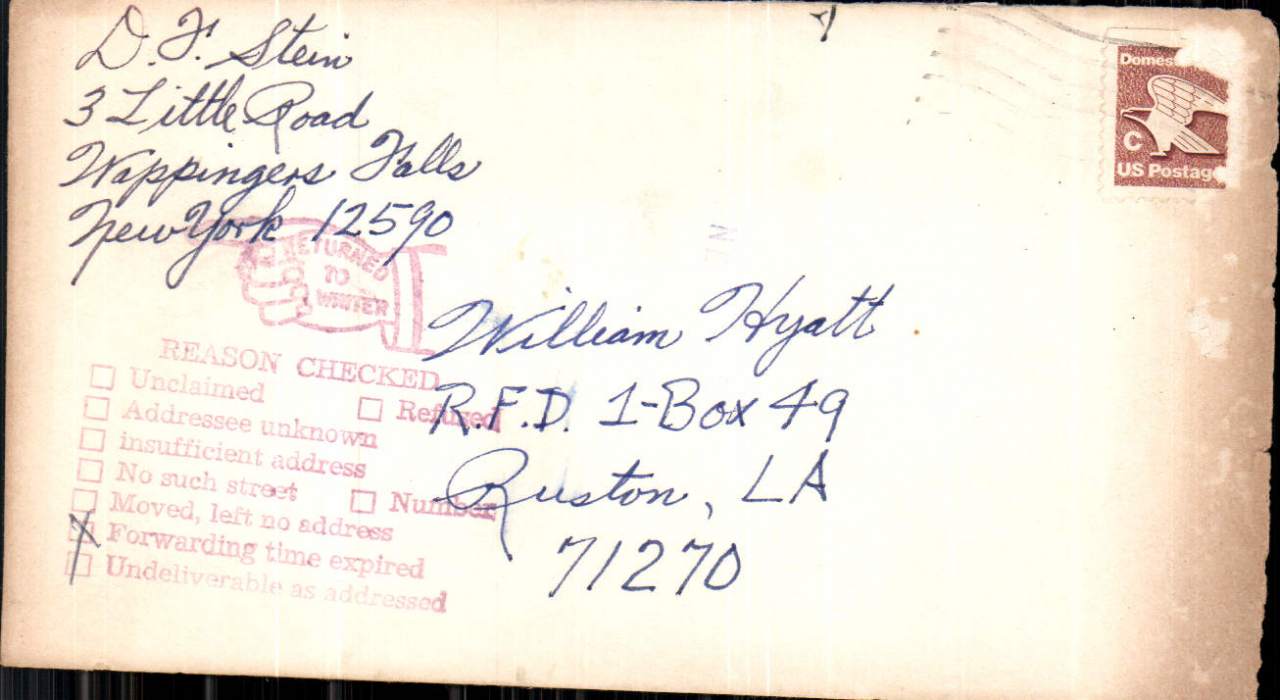 D. F. Stein
3 Little Road
Wappingers Falls
New York 12590
Domes
C
US Postag
RETURNED
TO
WRITER
William Hyatt
R.F.D. 1-Box 49
Ruston, LA
71270
REASON CHECKED
☐ Unclaimed ☐ Refused
☐ Addressee unknown
☐ insufficient address
☐ No such street ☐ Number
☐ Moved, left no address
☒ Forwarding time expired
☐ Undeliverable as addressed